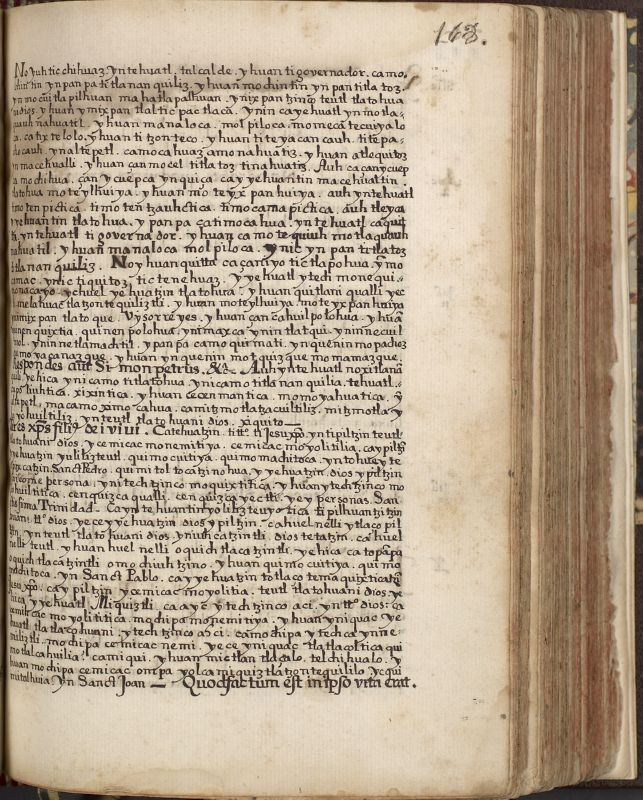 168.
No yuh tic chihuaz. yn tehuatl. tal cal de. yhuan ti governador. ca mo.
chin tin yn pan pa tē tla nan quiliz. yhuan mo chin tin yn pan titla toz
yn mo cūi tla pilhuan ma ha tla paslhuan. ynix pan tzinco teutl tlatohua
ni dios. yhuan ymix pan tlal tic pac tlaca. ynin ca yehuatl yn mo tla-
quauh nahuatil. yhuan manaloca. mol piloca. mo mecā tecuiya lo
ca. ca tix te lolo. yhuan ti tzon teco. yhuan ti te ya can cauh. ti tē pa-
cho cauh. yn al tepetl. camo ca huaz amo nahuātiz. yhuan atle quitoz
yn macehualli. yhuan can mo cel titla toz tinahuatiz. Auh ca can y cuep
ca mo chihua. çan y cuepca yn qui ca. cay yehuantin macehualtin.
tlatohua mo te ylhuiya. yhuan mo te yx pan huiya. auh yn tehuatl
timo ten pictica. timo ten tzauhctica. timo cama pictica. auh tleyca
yyehuantin tlatohua. y pan pa ça timo ca hua. yn te huatl ca quit
tla. yn tehuatl ti governador. yhuan camo te quiuh mo tla quauh
nahuatil. yhuan manaloca mol piloca. ynic yn pan tr tlatoz
titla nan quiliz. No yhuan quitta ca çamiyo tictla pohua. ymo
camac. ynic ti quitoz tic te nehuaz. y yehuatl y te di monequi..
mo na ca yo. y chuel ye huatzin tlatohua. yhuan quitlani qualli yec
tli. melahuac tlatzon te quiliztli. yhuan mo te ylhuiya. mo te yx pan huiya
ynimix pan tlato que. Vysorreyes. yhuan çan cahuil polohua. yhuā
yn nen quixtia. qui nen polohua. ynimaxca ynin tlat qui. yn innecuil
tol. ynin ne tlamachtil. yn pan pa camo qui mati. yn quenin mo padioz
ca mo ya canaz que. yhuan yn que nin mot quiz que mo mamaz que.
Respondes aut Si mon petrus. &c. Auh yn te huatl no xi tlanā
quili. ye hica ynicamo titlatohua ynicamo titla nan quilia. tehuatl..
caps tiuhtica. xixintica. yhuan cecenmantica. mo mo yahuatica. y
al tepetl. macamo ximo cahua. camitz mo tlatzacuiltiliz. mitz motlay
yo yo huiltiliz. yn teutl tlatohuani dios. xiquito—
tu es xp̄s filiꝰ dei viui. Catehuatzin. titto. ti Jesuxp̄o. yn tipiltzin teutl
tlatohuani dios. ycemicac mo nemitiya. cemicac mo yolitilia. cay piltzī
yehuatzin yulibz teutl. quimo cuitiya. quimo machitoca. yn tohueyte
opixcatzin Sanct Pedro. quimi tol to catzi no hua. yyehuatzin. dios y piltzin
ynicome persona. yni tech tzinco mo quixtitica. yhuan y tech tzinco mo
yohuilitica. cenquizca qualli. cen quizca yectli. yey personas. San-
ctissima Trinidad. Cayn te huantin yolibz teuyotica ti pilhuantzitzin
huani. tto dios. yeceyehuatzin dios y piltzin. ca huel nelli ytlaço pil
tzin. yn teutl tlatohuani dios. yniuh catzintli. dios te tatzin. ca huel
nelli teutl. yhuan huel nelli o quich tlacatzintli. yehica ca topāpa
oquich tlacatzintli omo chiuh tzino. yhuan quimo cuitiya. quimo
machitoca. yn Sanct Pablo. cayyehuatzin totlaço tema quixticatzī
Jesuxp̄o. cay piltzin ycemicac mo yolitia. teutl tlatohuani dios. ye
hica yyehuatl Miquiztli. ca ayc ytech tzinco aci. yn tto dios: ca
cemihcac mo yolititica. mochipa mo nemitiya. yhuan yn iquac ye-
huatl tla tlacohuani. ytech tzinco aci. camo chipa y techca yn ne-
miliztli. mochipa cemicac nemi. yece yniquac tlatlacoltica qui
mo tlalcahuilia. camiqui. yhuan mictlan tlaçalo. telchihualo. y
huan mochipa cemicac ompa yolcamiquiz tlatzontequililo. yc qui
mitalhuia yn Sanct Joan — Quod factum est in ipso vita erat.